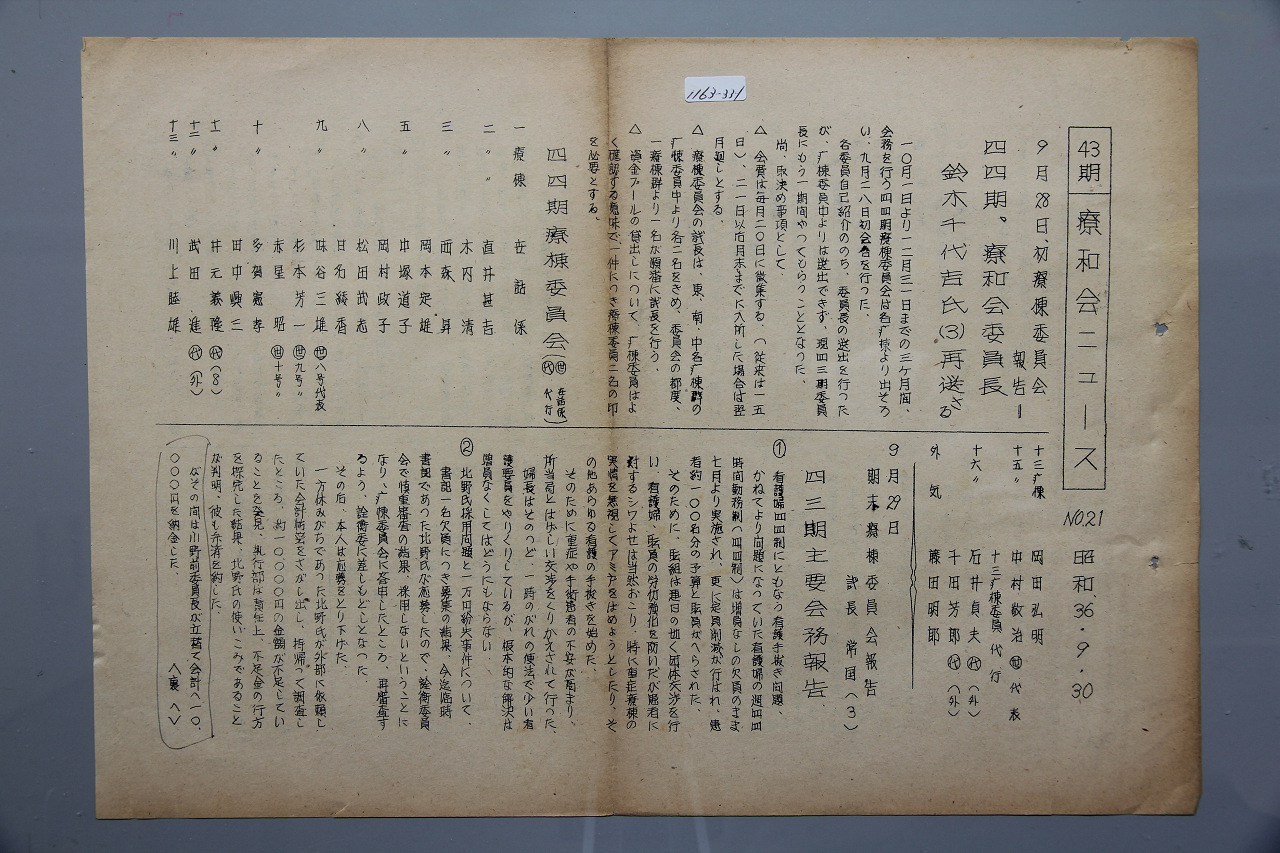 1163-331
43期 療和会ニュース NO.21 昭和、36・9・30
9月28日、初療棟委員会
報告ー
四四期、療和会委員長
鈴木千代吉氏(3)再送さる
一〇月一日より一二月三一日までの三ケ月間、
会務を行う四四期療棟委員会は各療棟より出そろ
い、九月二八日初会合を行った、
各委員自己紹介ののち、委員長の選出を行った
が、療棟委員中よりは選出できず、現四三期委員
長にもう一期間やってもらうこととなった、
尚、取決め事項として、
△ 会費は毎月二〇日に徴集する、(従来は一五
日)、二一日以后月末までに入所した場合は翌
月廻しとする、
△ 療棟委員会の議長は、東、南、中各療棟群の
療棟委員中より各二名をきめ、委員会の都度、
一療棟群より一名が順番に議長を行う、
△ 資金プールの貸出しについて、療棟委員はよ
く確認する意味で、一件につき療棟委員二名の印
を必要とする、
四四期療棟委員会(世 世話係 代 代行)
一療棟 世話係
二〃 直井甚吉
木内 清
三〃 西森 昇
岡本定雄
五〃 中塚道子
岡村政子
八〃 松田武志
日名綾香
九〃 味谷三雄 世八号代表
杉本芳一 世九号〃
赤星 昭 世十号〃
十〃 多賀憲孝
田中順三
十一〃 井元義隆 代(8)
十二〃 武田 進 代(外)
十三〃 川上睦雄
十三ケ療棟 岡田弘明
十五〃 中村敬治 世代表
十三療棟委員 代行
十六〃 石井貞夫 代(外)
千田芳郎 代(外)
外気 篠田明郎
9月29日
期末療棟委員会報告
議長 常国(3)
四三期主要会務報告
① 看護婦四四制にともなう看護手抜き問題、
かねてより問題になっていた看護婦の週四四
時間勤務制(四四制)は増員なしの欠員のまま
七月より実施され、更に定員削減が行はれ、患
者約一〇〇名分の予算と職員がへらされた、
そのために、職組は連日の如く団体交渉を行
い、看護婦、職員の労働強化を防いだが患者に
対するシワよせは当然おこり、特に重症療棟の
実情を無視してアミアをはめようとしたり、そ
の他あらゆる看護の手抜きを始めた、
そのために重症や手術患者の不安が高まり、
所当局とははげしい交渉をくりかえされて行った、
婦長はそのつど、一時のがれの便法で少い看
護要員をやりくりしているが、根本的な解決は
増員なくしてはどうにもならない、
② 北野氏採用問題と一万円紛失事件について、
書記一名欠員につき募集の結果、今迄臨時
書記であった北野氏が応募したので、詮衡委員
会で慎重審査の結果、採用しないということに
なり、療棟委員会に答申したところ、再審査す
るよう、詮衡委に差しもどしとなった、
その后、本人は応募をとり下げた、
一方休みがちであった北野氏が外部に依頼し
ていた会計帳簿をさがし出し、持帰って調査し
たところ、約一〇〇〇〇円の金額が不足してい
ることを発見、執行部は責任上、不足金の行方
を探究した結果、北野氏の使いこみであること
が判明、彼も弁済を約した、
なおその間は小野前委員長が立替て会計へ一〇、
〇〇〇円を納金した、 〈裏へ〉